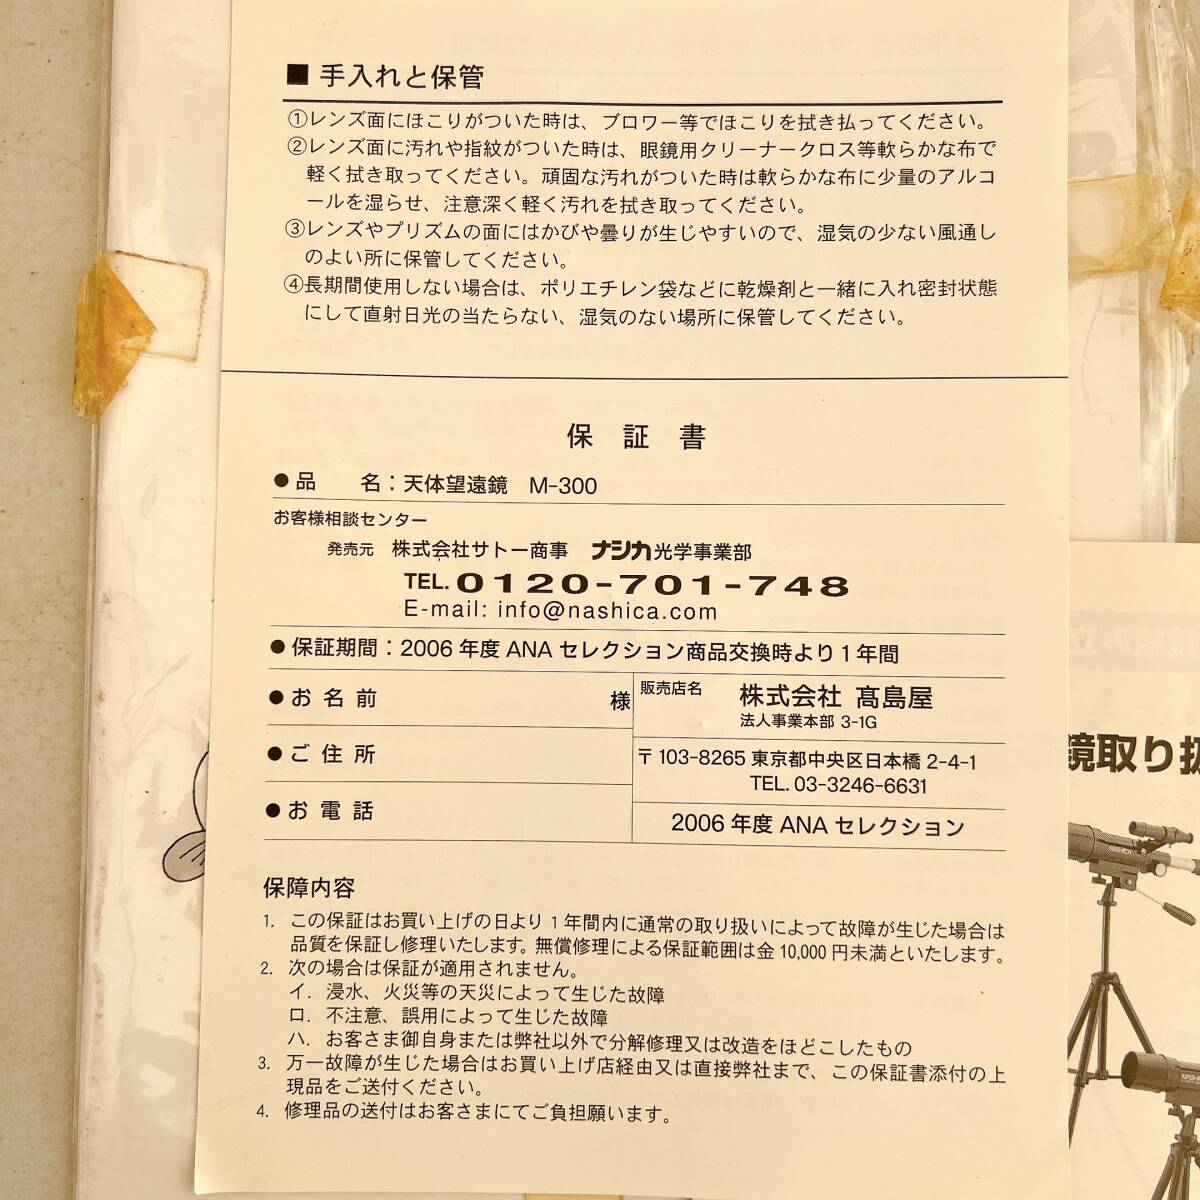 ■ 手入れと保管
①レンズ面にほこりがついた時は、ブロワー等でほこりを拭き払ってください。
②レンズ面に汚れや指紋がついた時は、眼鏡用クリーナークロス等軟らかな布で
軽く拭き取ってください。頑固な汚れがついた時は軟らかな布に少量のアルコ
ールを湿らせ、注意深く軽く汚れを拭き取ってください。
③レンズやプリズムの面にはかびや曇りが生じやすいので、湿気の少ない風通し
のよい所に保管してください。
④長期間使用しない場合は、ポリエチレン袋などに乾燥剤と一緒に入れ密封状態
にして直射日光の当たらない、湿気のない場所に保管してください。
保 証 書
●品 名：天体望遠鏡 M-300
お客様相談センター
発売元 株式会社サトー商事 ナシカ光学事業部
TEL. 0120-701-748
E-mail: info@nashica.com
●保証期間：2006 年度 ANA セレクション商品交換時より 1 年間
●お 名 前 様
●ご 住 所
●お 電 話
販売店名 株式会社 髙島屋
法人事業本部 3-1G
〒103-8265 東京都中央区日本橋 2-4-1
TEL. 03-3246-6631
2006 年度 ANA セレクション
保障内容
1. この保証はお買い上げの日より 1 年間内に通常の取り扱いによって故障が生じた場合は
品質を保証し修理いたします。無償修理による保証範囲は金 10,000 円未満といたします。
2. 次の場合は保証が適用されません。
イ. 浸水、火災等の天災によって生じた故障
ロ. 不注意、誤用によって生じた故障
ハ. お客さま御自身または弊社以外で分解修理又は改造をほどこしたもの
3. 万一故障が生じた場合はお買い上げ店経由又は直接弊社まで、この保証書添付の上
現品をご送付ください。
4. 修理品の送付はお客さまにてご負担願います。
鏡取り扱